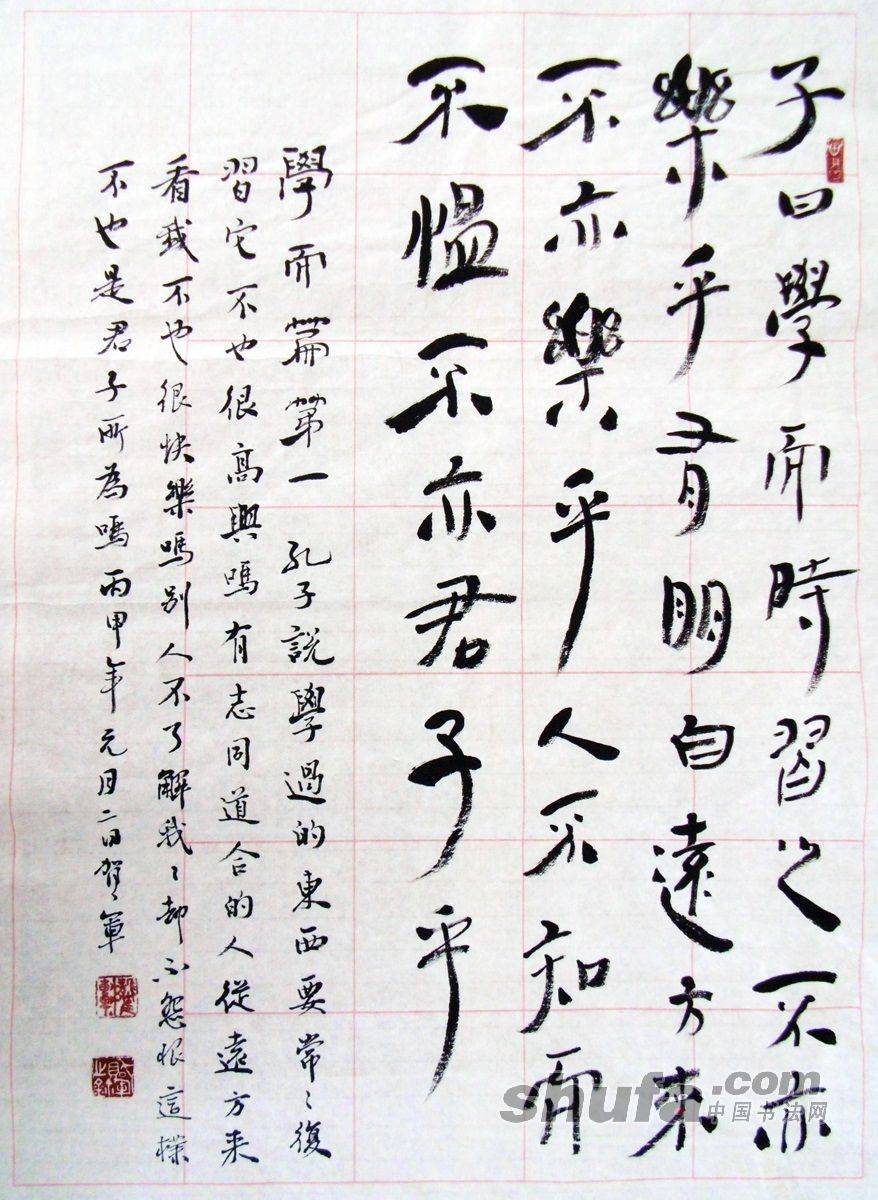 子曰學而時習之不亦
樂乎有朋自遠方來
不亦樂乎人不知而
不愠不亦君子乎
學而篇第一 孔子說學過的東西要常〻復
習它不也很高興嗎有志同道合的人從遠方来
看我不也很快樂嗎别人不了解我〻却不怨恨這樣
不也是君子所為嗎丙甲年元月二日贺〻軍
shufa.com
中国书法网